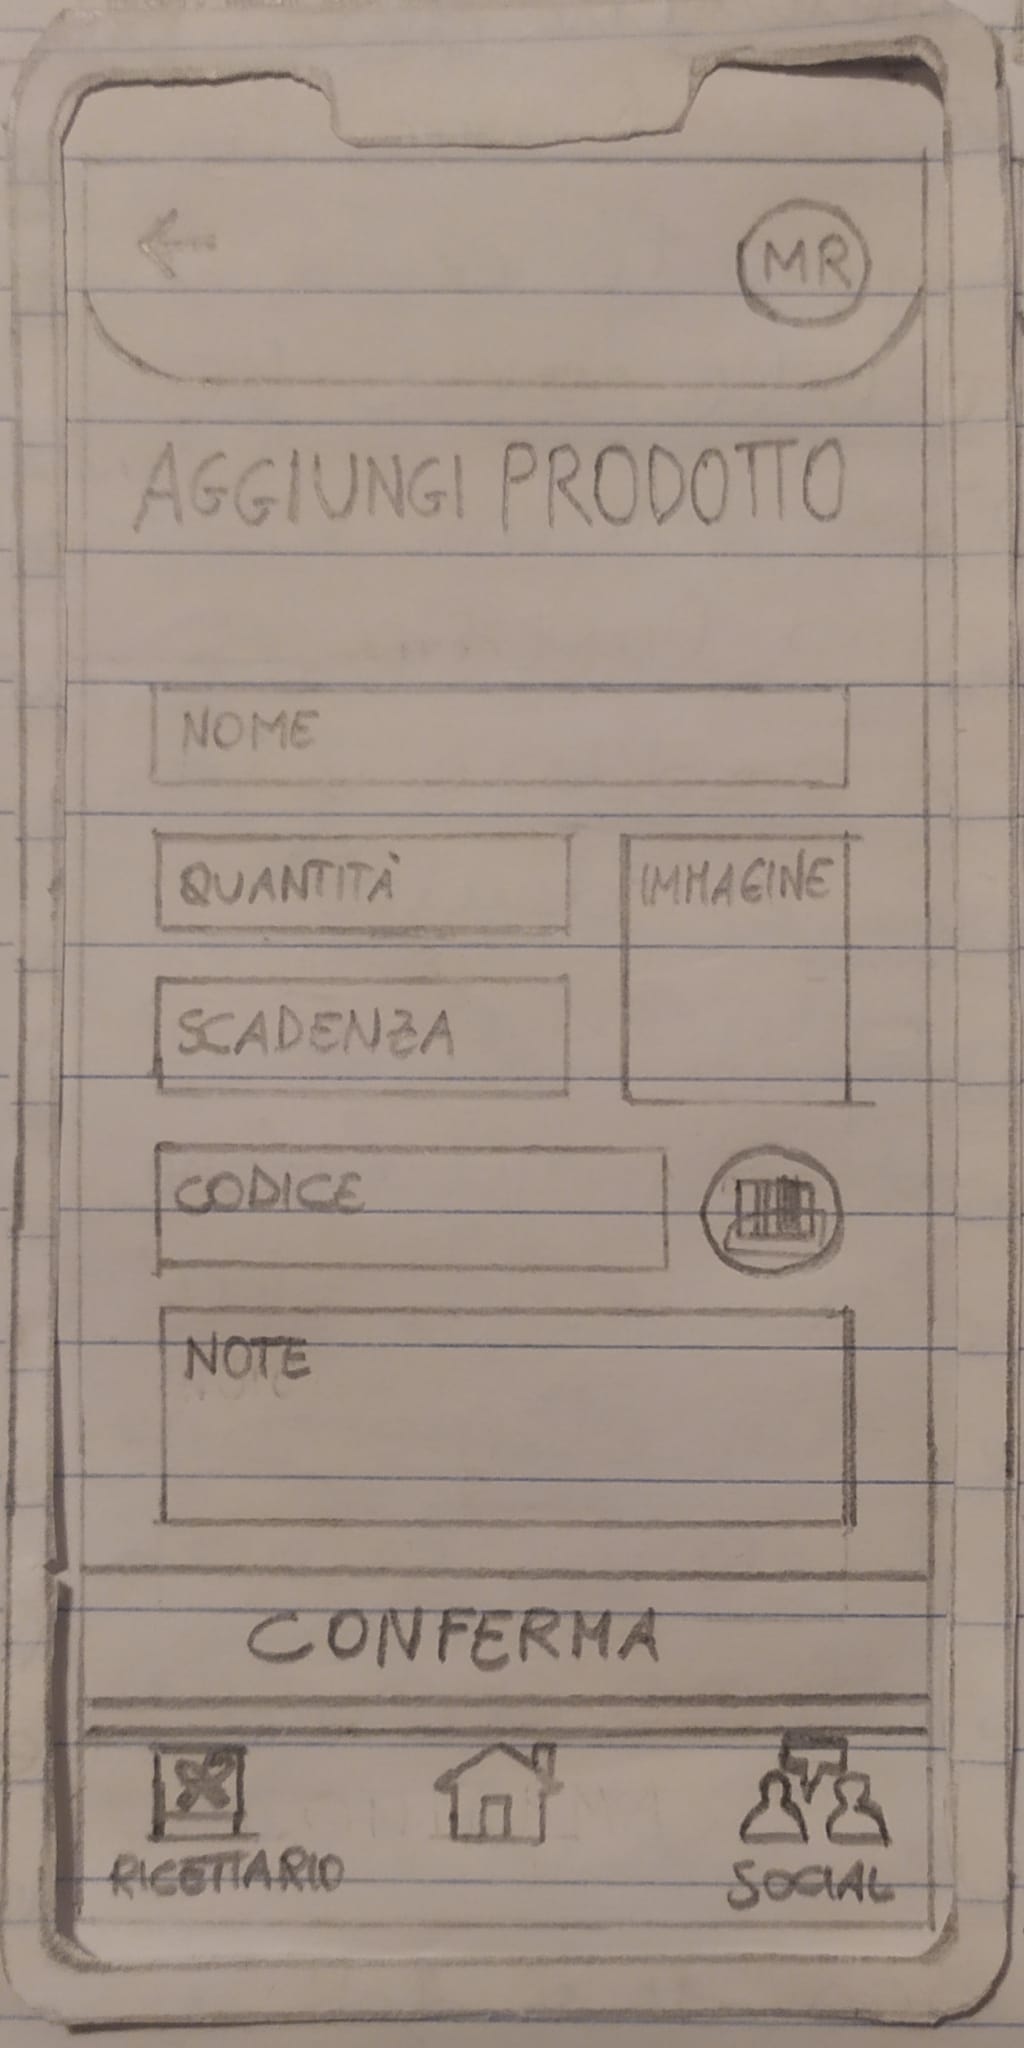 MR
AGGIUNGI PRODOTTO
NOME
QUANTITÀ
IMMAGINE
SCADENZA
CODICE
NOTE
CONFERMA
RICETTARIO
SOCIAL